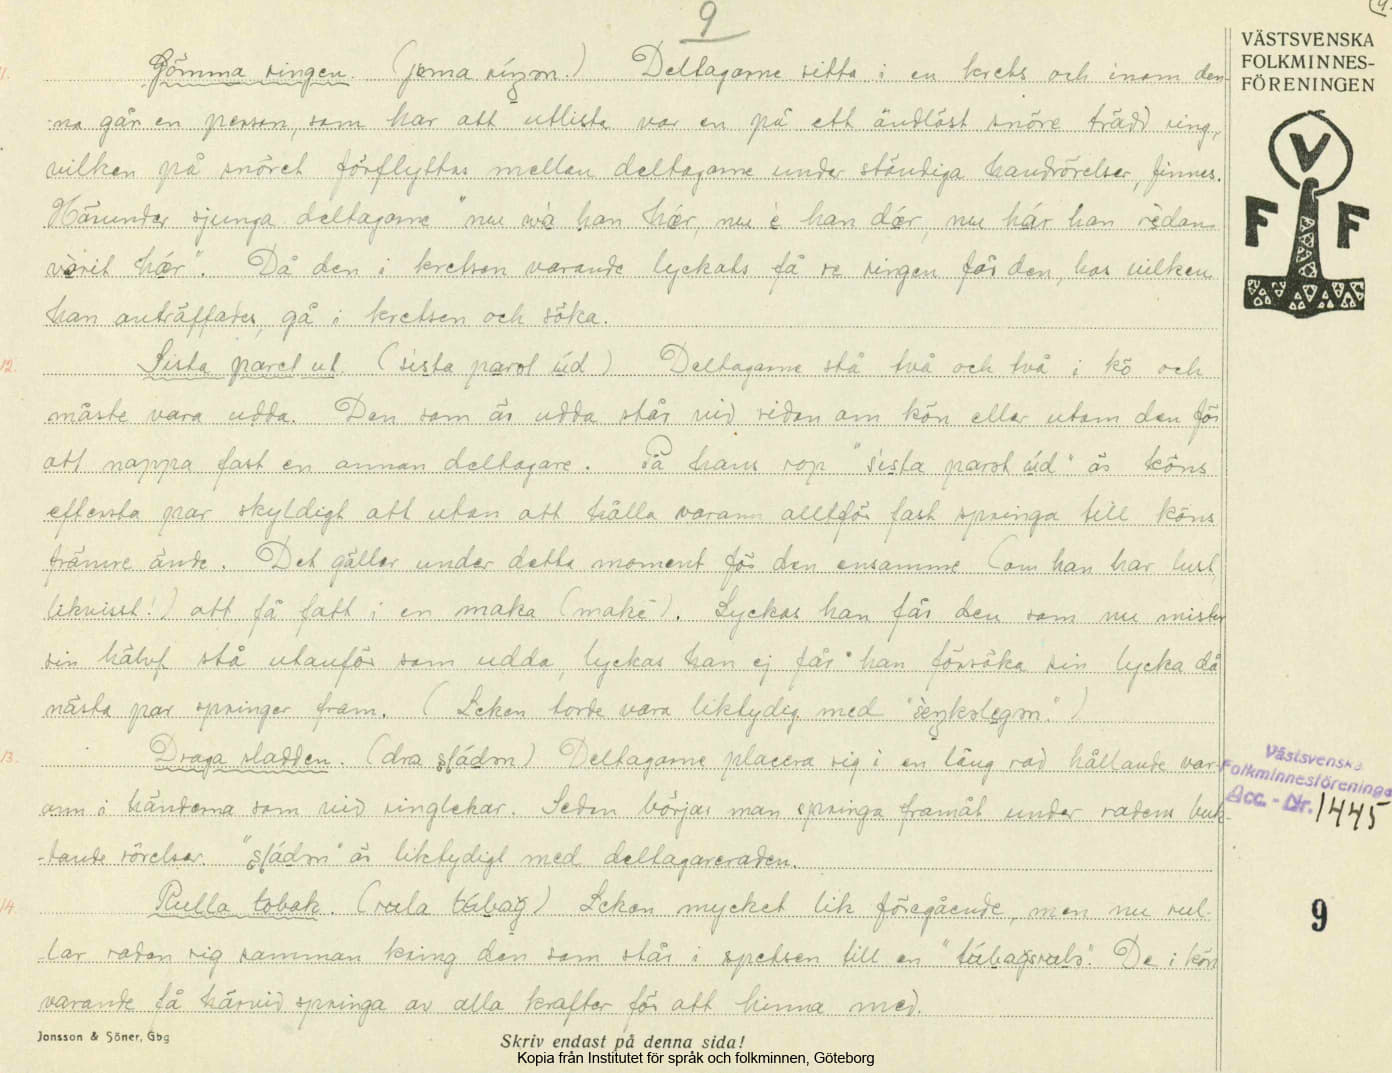 9
11. Gömma ringen. (jœma ríŋən.) Deltagarne sitta i en krets och inom den-
na går en person, som har att utlista var en på ett ändlöst snöre trädd ring,
vilken på snöret förflyttas mellan deltagarne under ständiga handrörelser, finnes.
Härunder sjunga deltagarne "nu wa han här, nu è han där, nu här han rèdan
vàrit här". Då den i kretsen varande lyckats få se ringen får den, hos vilken
han anträffades, gå i kretsen och söka.
12. Sista paret ut. (sista parət úd) Deltagarne stå två och två i kö och
måste vara udda. Den som är udda står vid sidan om kön eller utom den för
att nappa fast en annan deltagare. På hans rop "sista parət úd" är köns
eftersta par skyldigt att utan att hålla varann alltför fast springa till köns
främre ände. Det gäller under detta moment för den ensamme (om han har lust
likvisst!) att få fatt i en maka (make). Lyckas han får den som nu mister
sin hälvf. stå utanför som udda, lyckas han ej får han försöka sin lycka då
nästa par springer fram. (Leken torde vara liktydig med "sèŋkslegən".)
13. Draga sladden. (dra sládən) Deltagarne placera sig i en lång rad hållande var-
ann i händerna som vid ringlekar. Sedan börjar man springa framåt under radens buk-
tande rörelser. "sládən" är liktydigt med deltagareraden.
14. Rulla tobak. (rula túbag) Leken mycket lik föregående, men nu rul-
lar raden sig samman kring den som står i spetsen till en "túbagsrulə". De i kön
varande få härvid springa av alla krafter för att hinna med.
Jonsson & Söner, Gbg
Skriv endast på denna sida!
Kopia från Institutet för språk och folkminnen, Göteborg
VÄSTSVENSKA
FOLKMINNES-
FÖRENINGEN
V
F F
Västsvenska
Folkminnesföreningen
Acc.-Nr. 1445
9